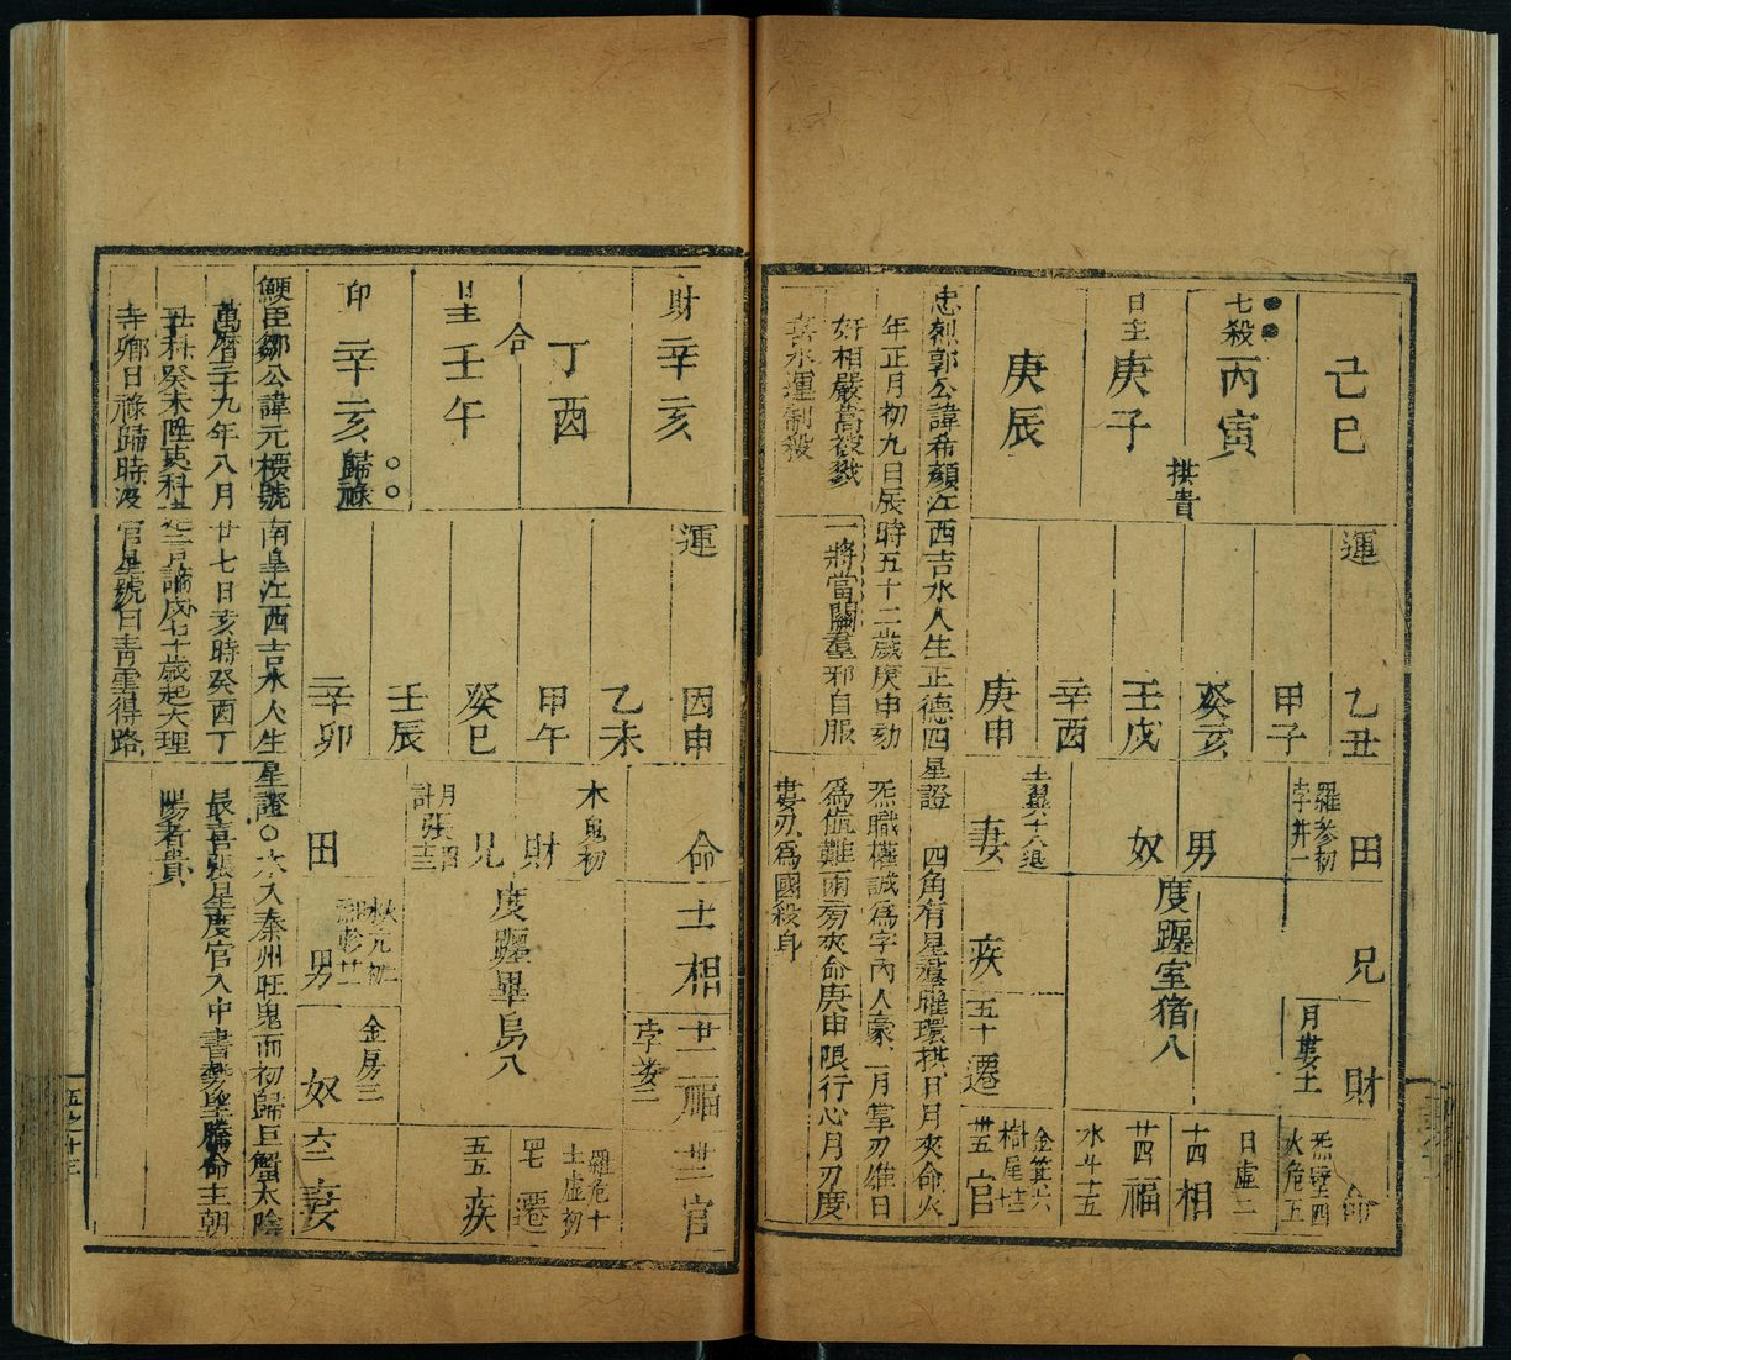 己巳
七殺
丙寅
拱貴
日主
庚子
庚辰
運
乙丑
甲子
癸亥
壬戌
辛酉
庚申
田
羅參初
孛井一
男
奴
妻
兄
疾
財
月婁土
度躔室猪八
五十
遷
命
炁壁四
火危五
日虛二
十四
相
廿四
福
水斗十五
金箕六
官
忠烈郭公諱希顏江西吉水人生正德四
年正月初九日辰時五十二歲庚申劾
奸相嚴嵩被戮
喜水運制殺
一將當關羣邪自服
星證 四角有星蓋曜環拱日月夾命火
炁職權誠為字內人豪月掌刃維日
為仇難雨旁夾命庚申限行心月刃度
婁刃為國殺身
財
辛亥
丁酉
合
日主
壬午
印
辛亥
歸祿
運
丙申
乙未
甲午
癸巳
壬辰
辛卯
命
木鬼初
財
兄
月張四
田
相
度躔畢烏八
男
福
孛婁二
金房三
奴
官
羅危十
土虛初
遷
五五
疾
妻
鯁臣鄒公諱元標號南皋江西吉水人生
萬曆三十九年八月廿七日亥時癸酉丁
丑科癸未陞吏科
七十歲起大理
寺卿日祿歸時沒官星號曰青雲得路
星證○水入秦州旺鬼而初歸巨蟹太陰
最喜張星度官入中書勢
命主朝
陽者貴
五之十三